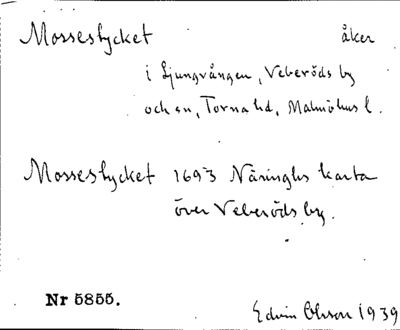 Mossestycket åker
i Ljungvången, Veberöds by
och sn, Torna hd, Malmöhus l.
Mossestycket 1693 Näringhs karta
över Veberöds by.
Nr 5855.
Edvin Ohlson 1939